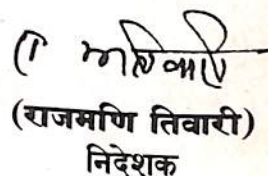 (राजमणि तिवारी)
निदेशक